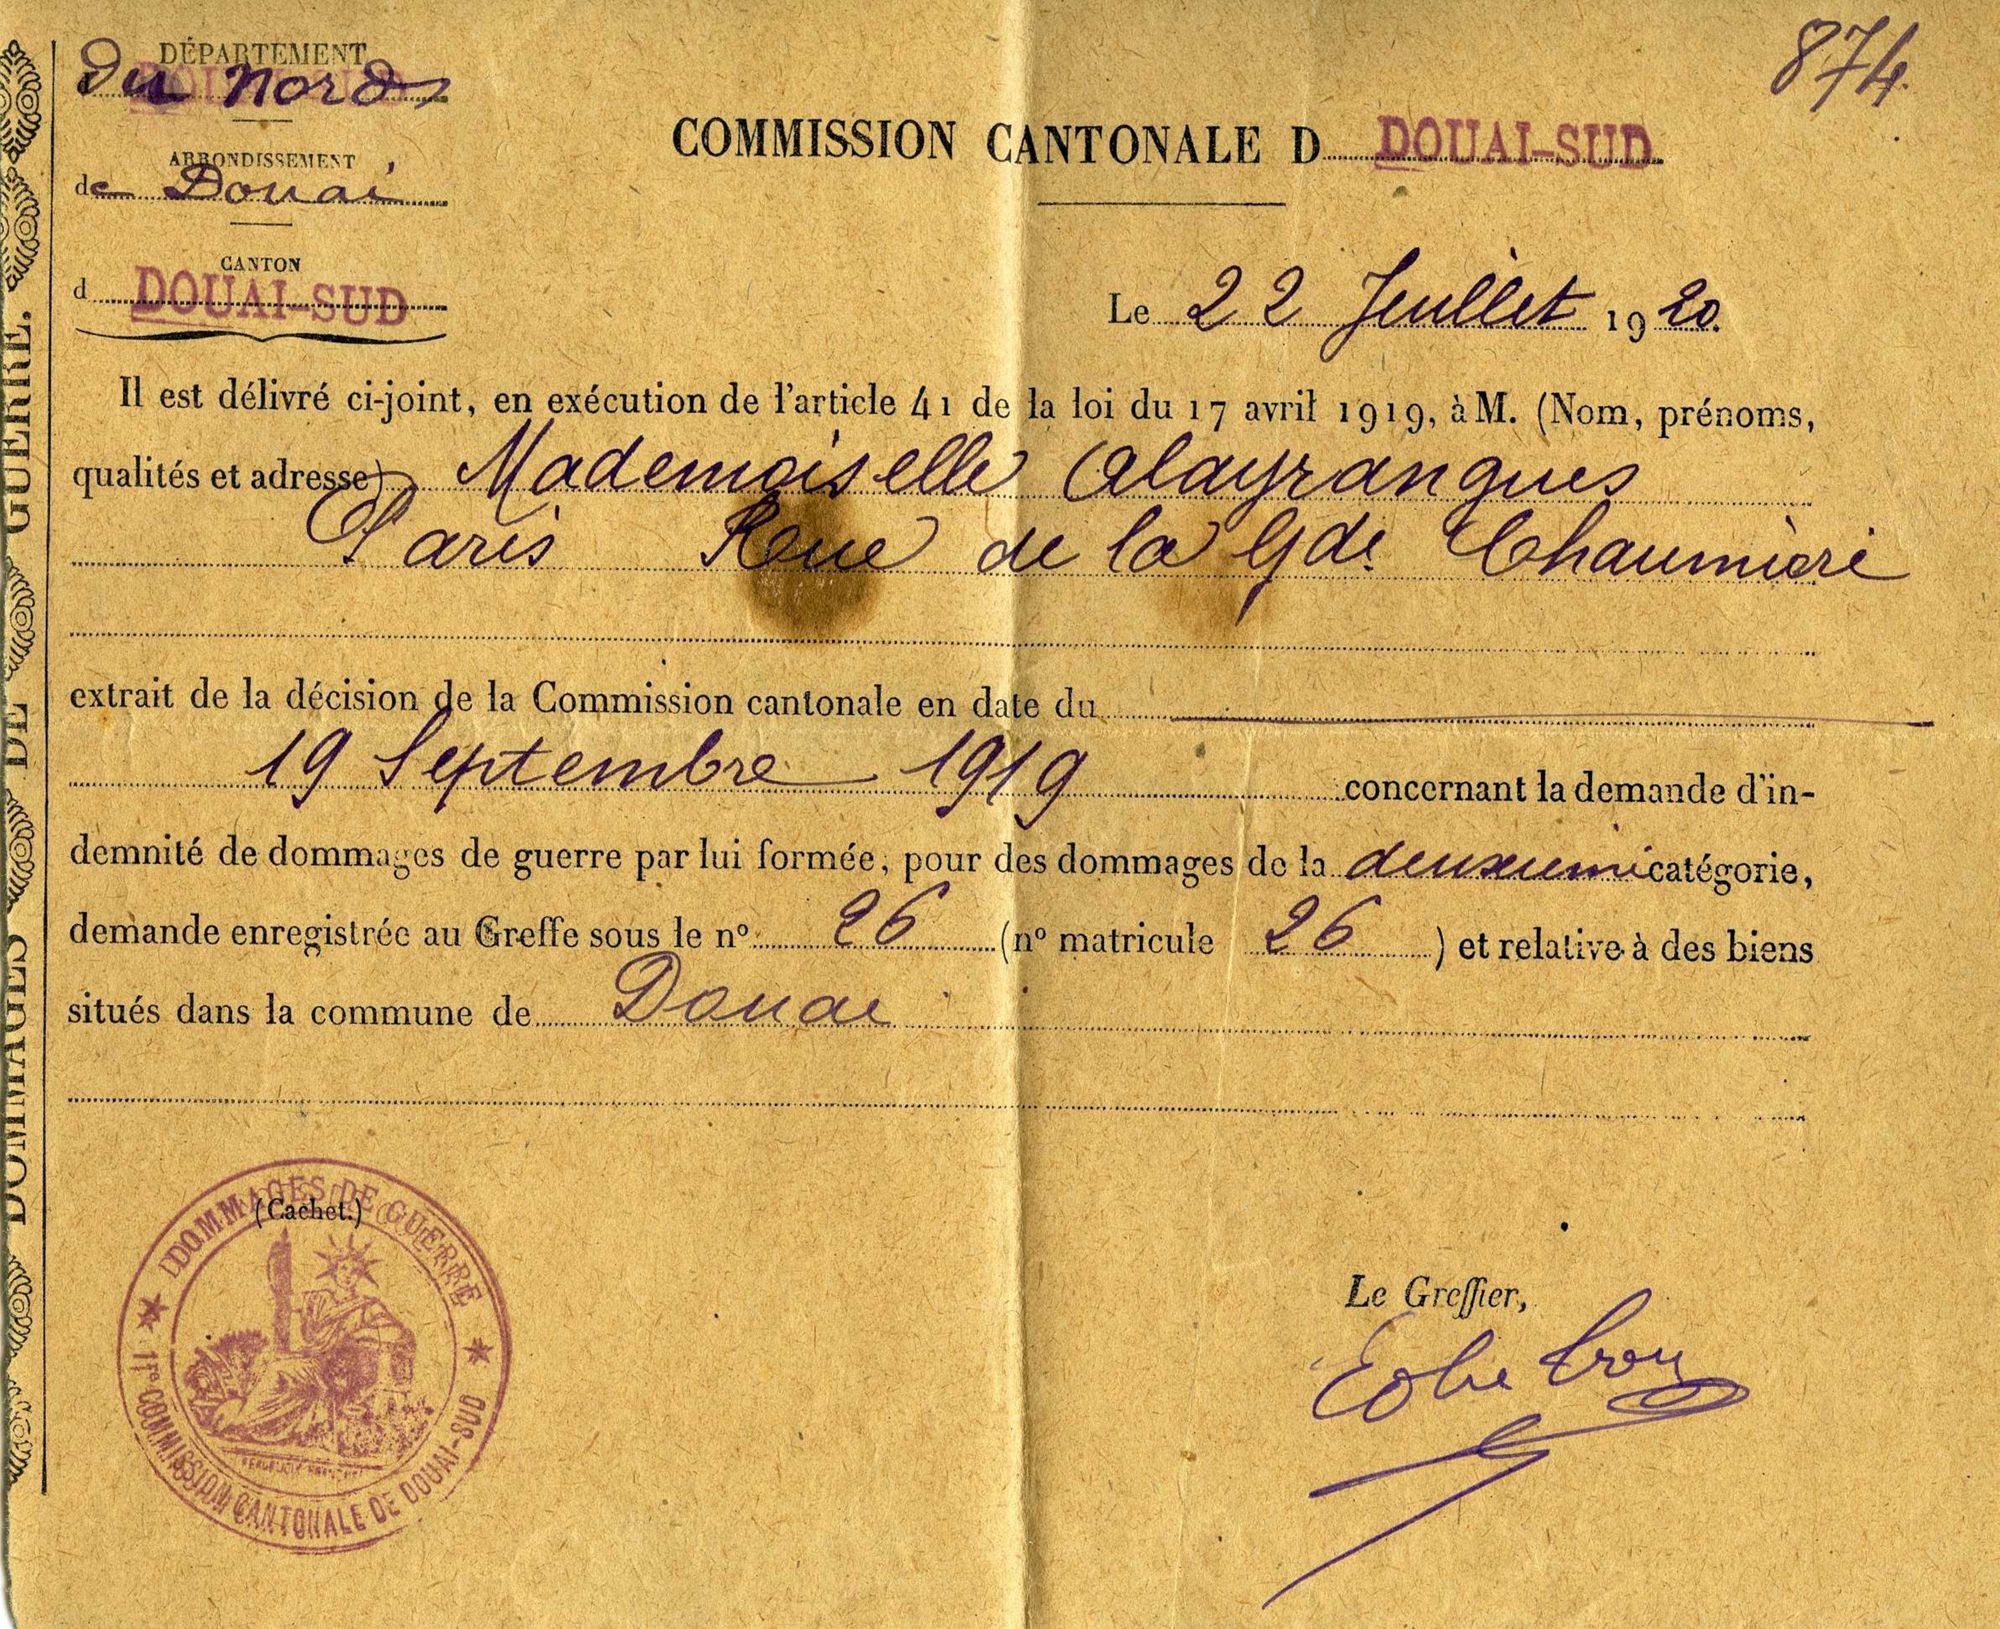 DÉPARTEMENT
du Nord
ARRONDISSEMENT
de Douai
CANTON
d DOUAI-SUD
874.
COMMISSION CANTONALE D DOUAI-SUD
Le 22 Juillet 1920.
Il est délivré ci-joint, en exécution de l'article 41 de la loi du 17 avril 1919, à M. (Nom, prénoms,
qualités et adresse) Mademoiselle Alayrangues
Paris Rue de la Gde Chaumière
extrait de la décision de la Commission cantonale en date du
19 Septembre 1919 concernant la demande d'in-
demnité de dommages de guerre par lui formée, pour des dommages de la deuxième catégorie,
demande enregistrée au Greffe sous le nº 26 (nº matricule 26 ) et relative à des biens
situés dans la commune de Douai
(Cachet.)
DOMMAGES DE GUERRE
1re COMMISSION CANTONALE DE DOUAI-SUD
RÉPUBLIQUE FRANÇAISE
Le Greffier,
DOMMAGES DE GUERRE.